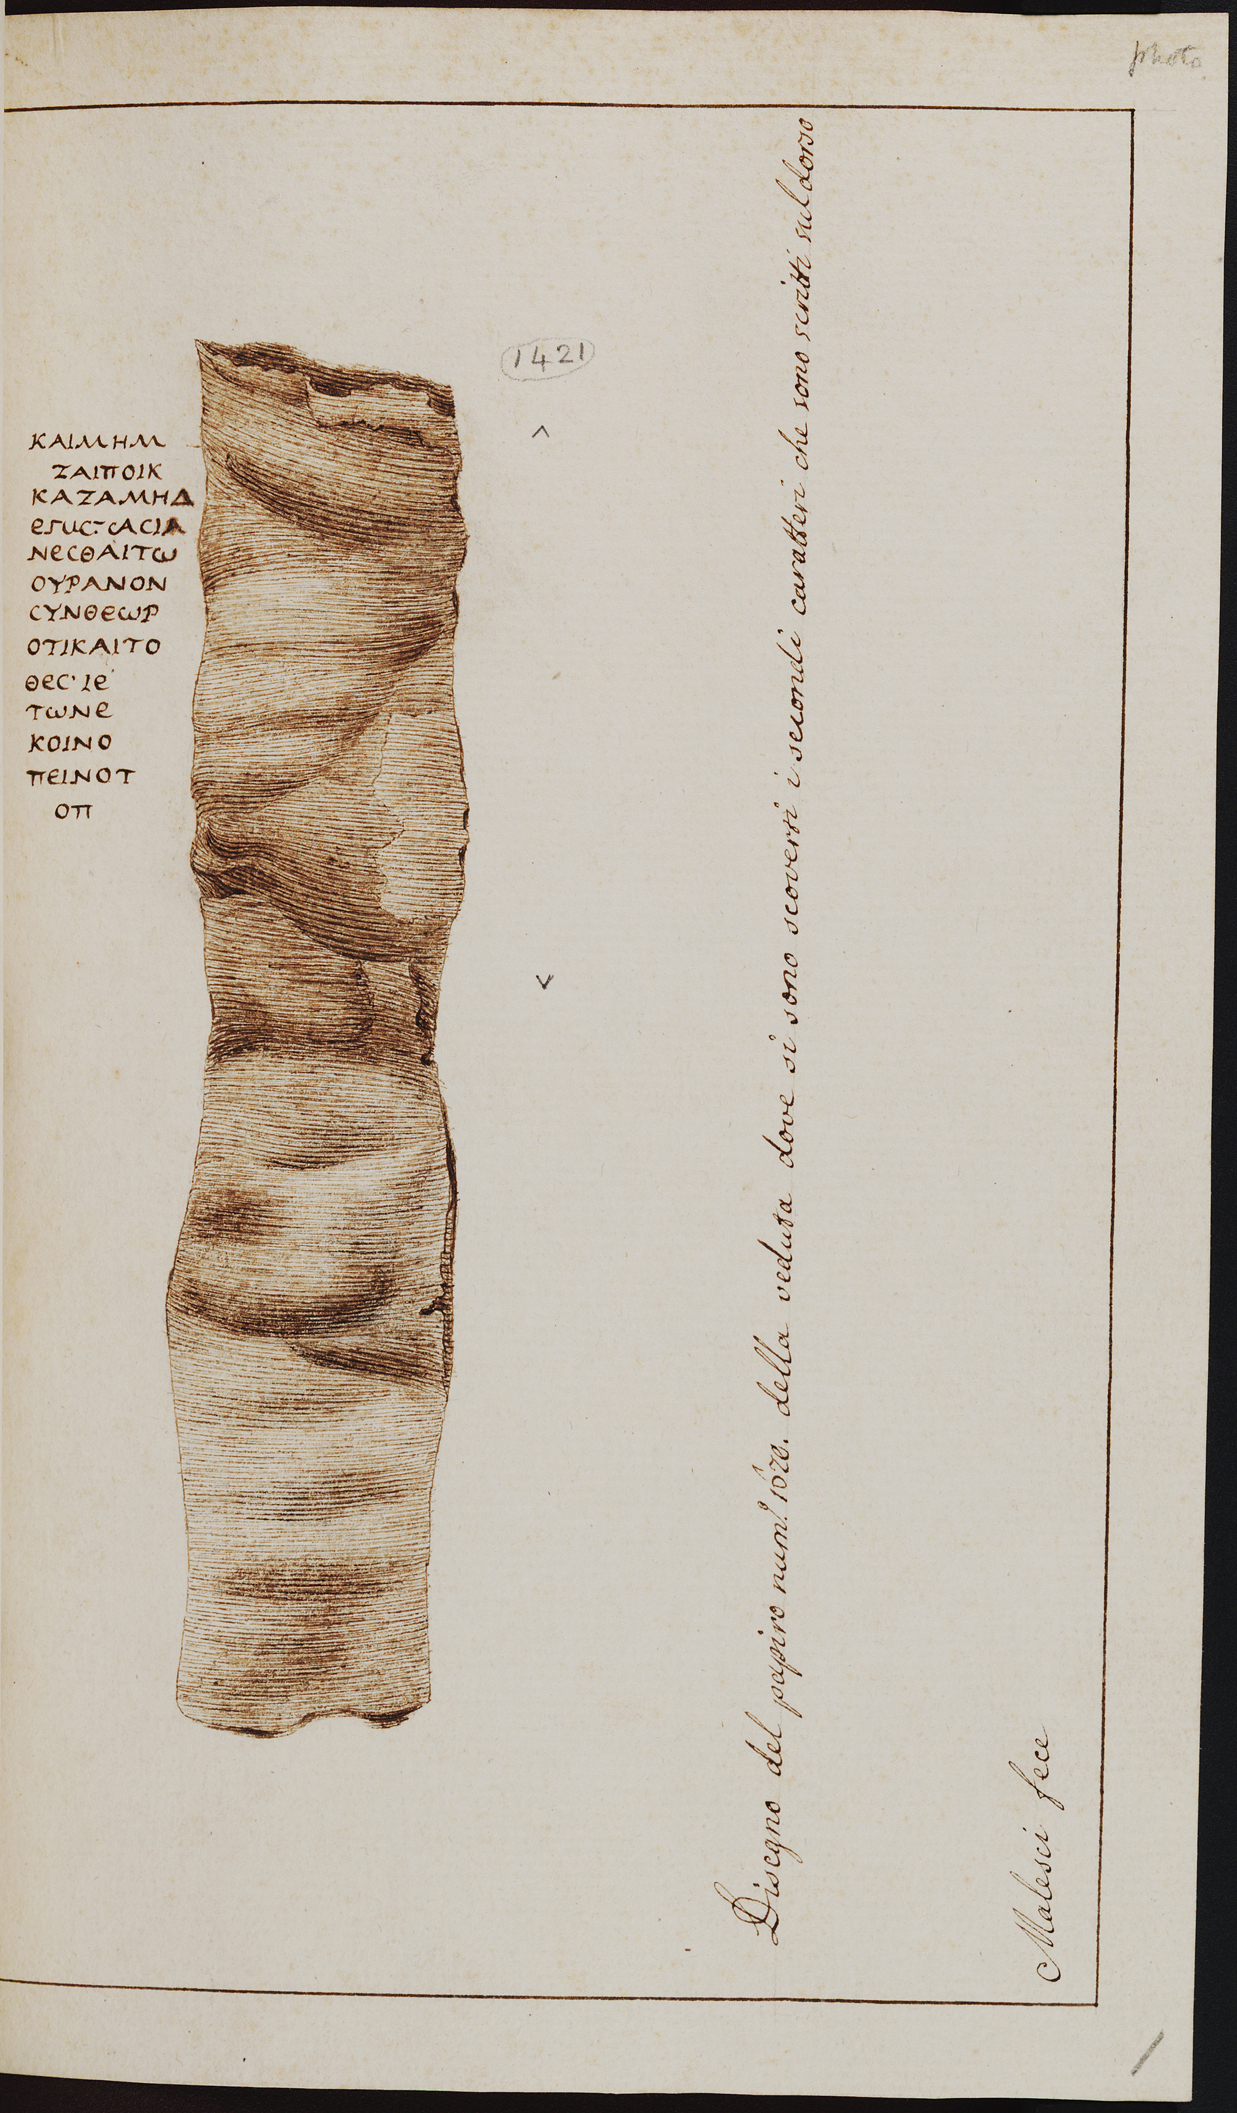 photo
1421
ΚΑΙΜΗΜ
ΖΑΙΠΟΙΚ
ΚΑΖΑΜΗΔ
ΝΕϹΘΑΙΤΩ
ΟΥΡΑΝΟΝ
ϹΥΝΘΕΩΡ
ΟΤΙΚΑΙΤΟ
ΘΕϹ
ΤΩΝΕ
ΚΟΙΝΟ
ΠΕΙΝΟΤ
ΟΠ
Disegno del papiro num.º 1670. della veduta dove si sono scoverti i secondi caratteri che sono scritti sul dorso
Malesci fece